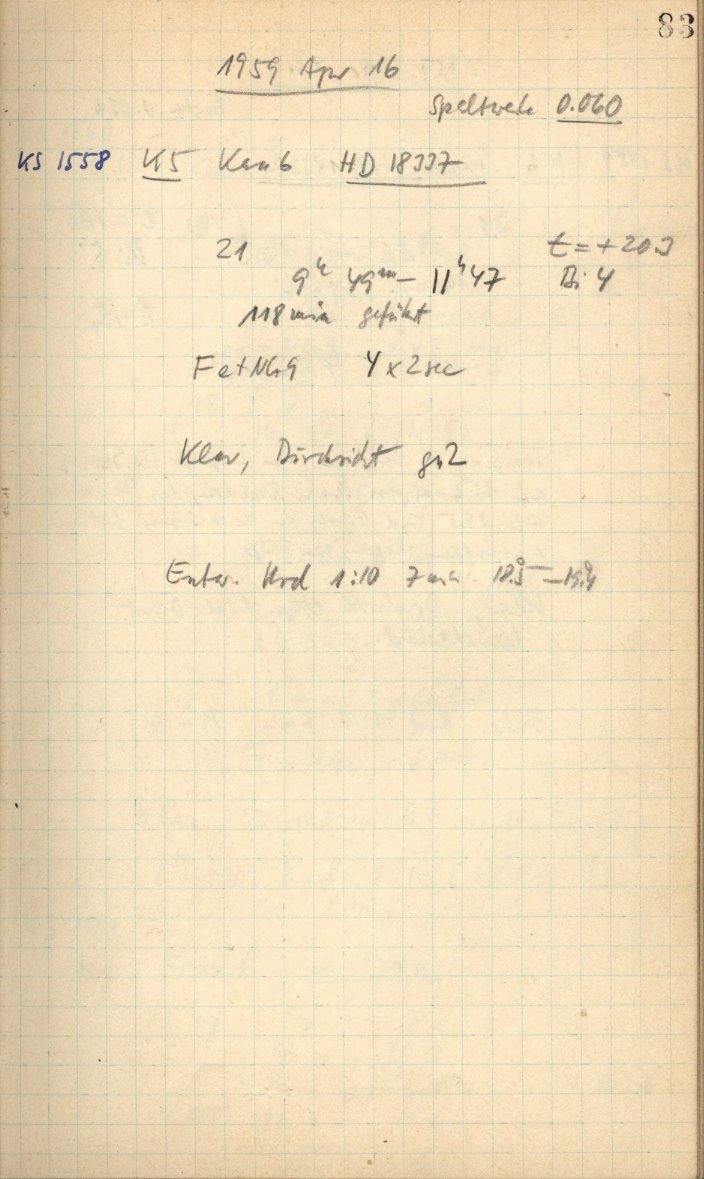 83
1959 Apr 16
Spaltweite 0.060
KS 1558 K5 Kam b HD 18337
21 t = + 20
9h 49m – 11h 47 Bi 4
118 min geführt
Fe + 4 x 2 sec
Klar, Durchsicht gu2
Entw. Rod 1:10 7 min